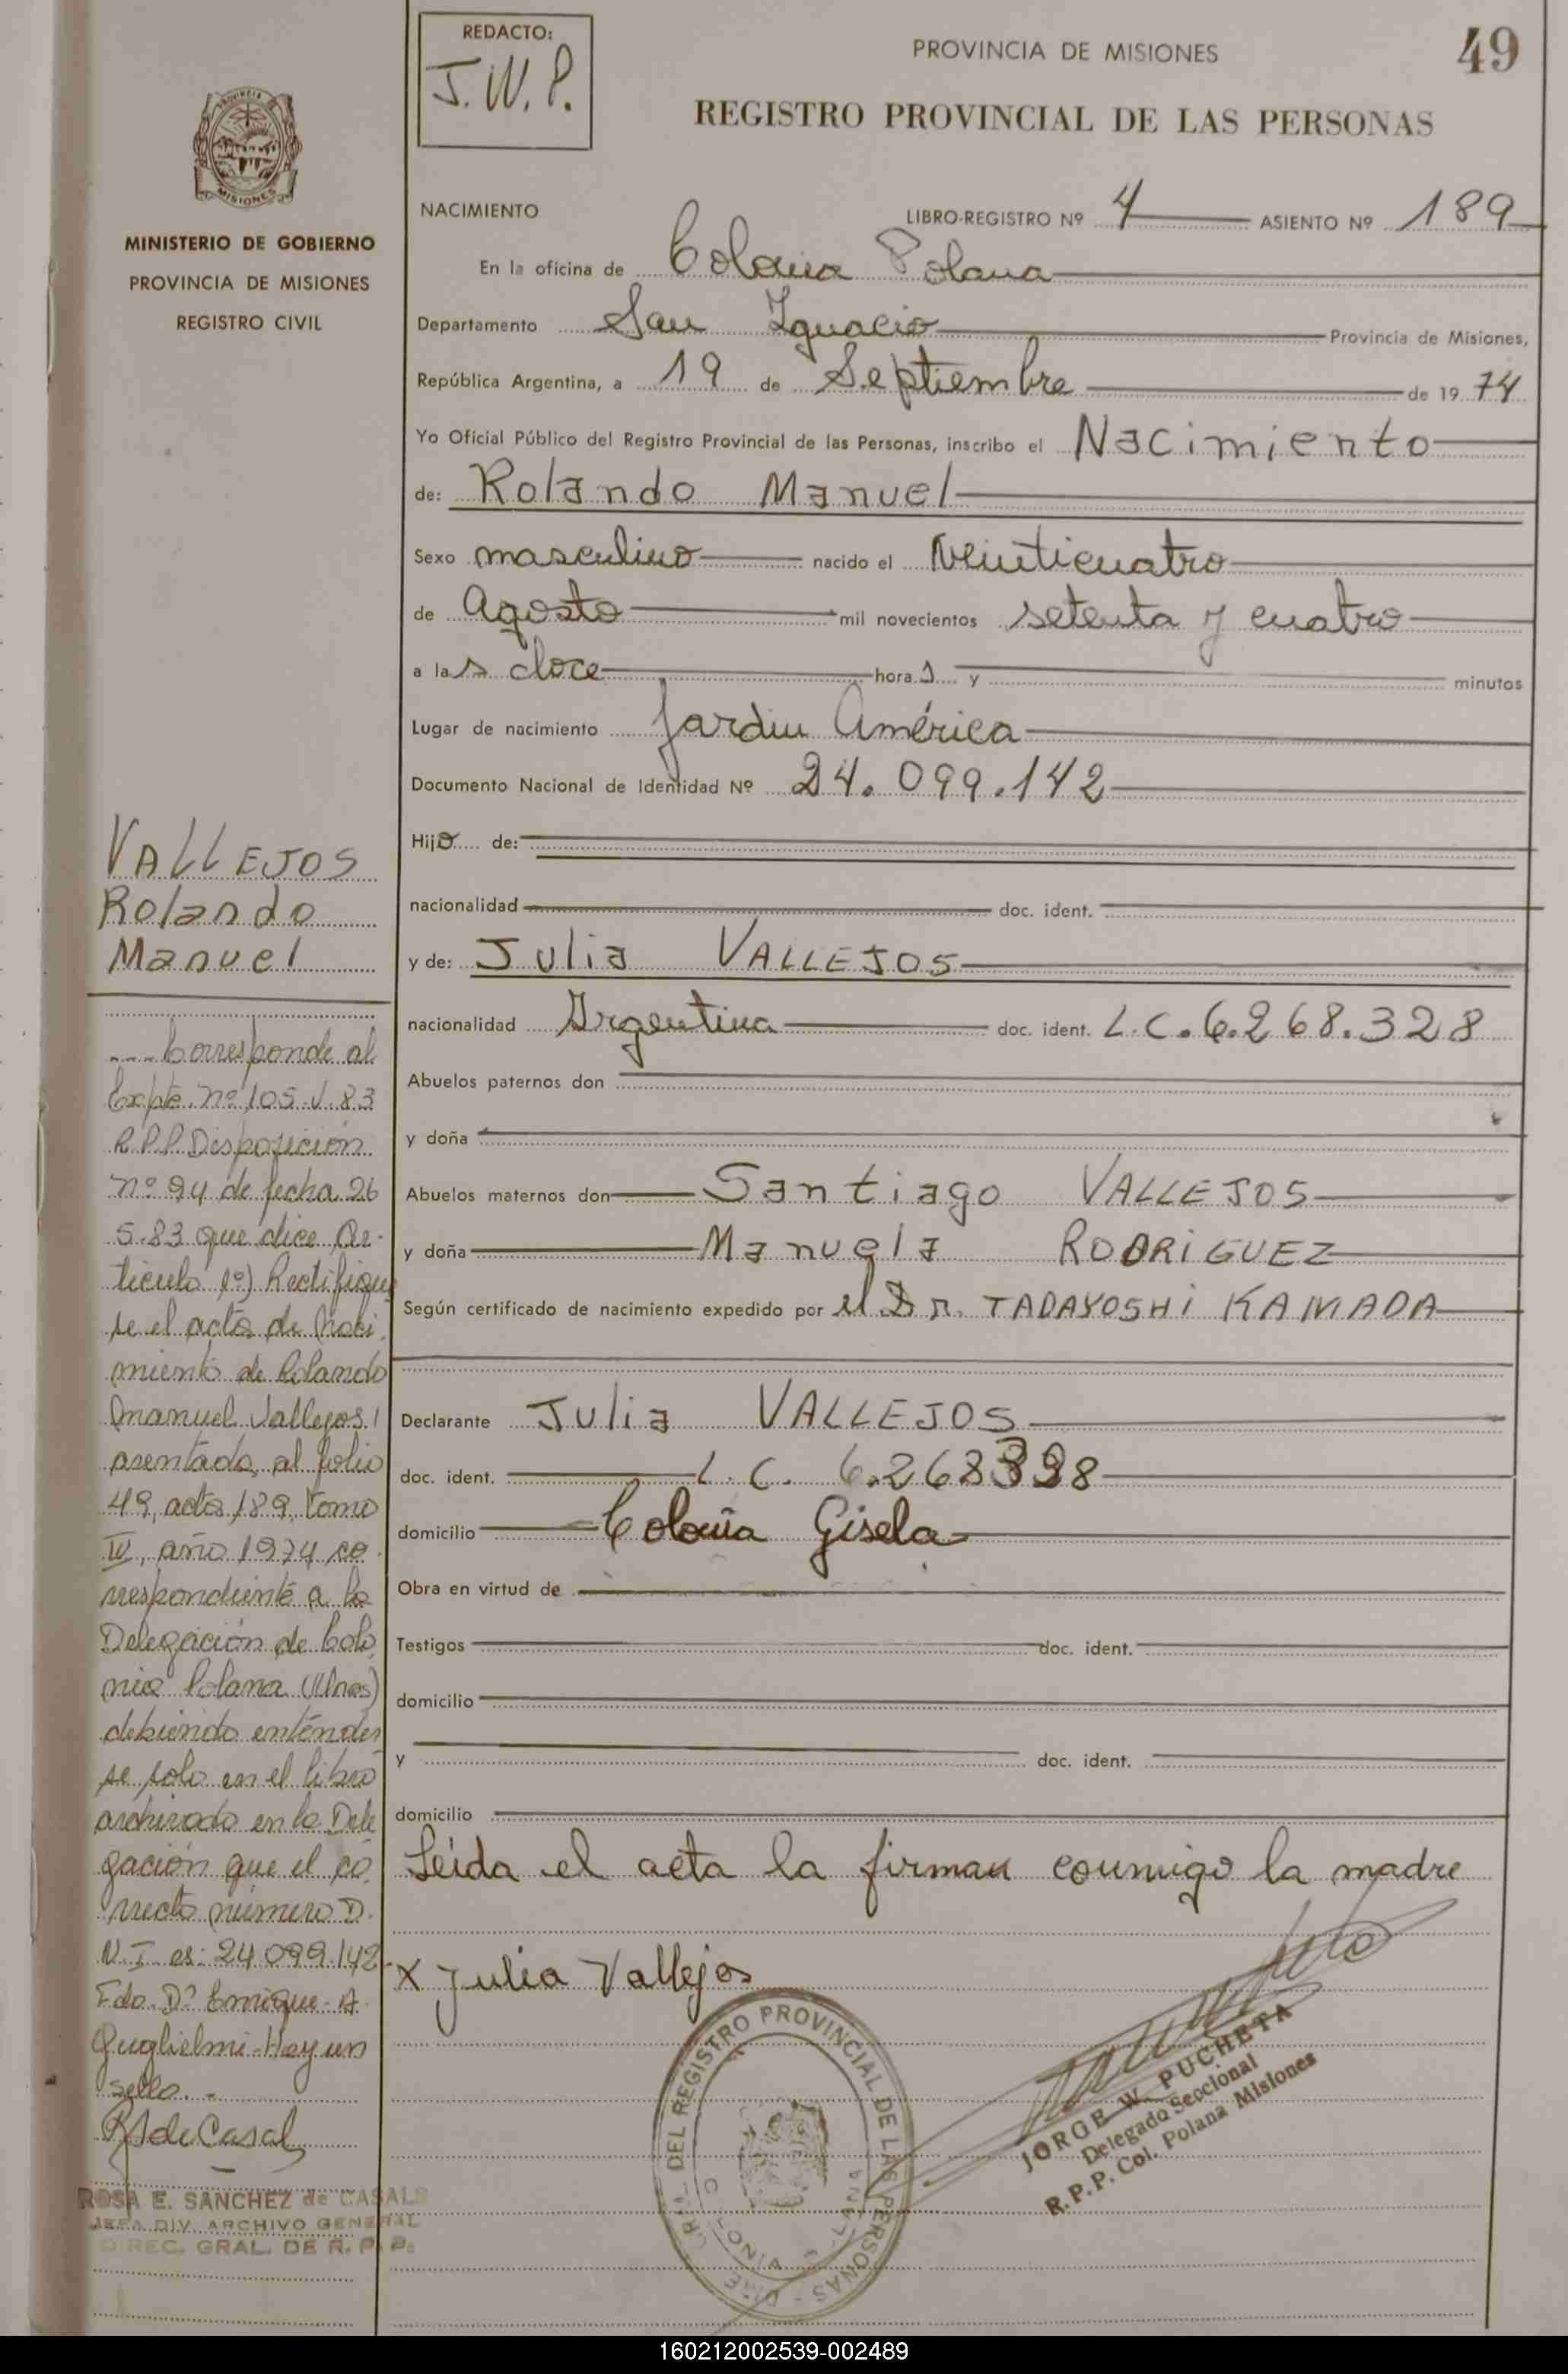 REDACTO:
J.W.P.
PROVINCIA DE MISIONES
49
REGISTRO PROVINCIAL DE LAS PERSONAS
PROVINCIA
MISIONES
MINISTERIO DE GOBIERNO
PROVINCIA DE MISIONES
REGISTRO CIVIL
NACIMIENTO LIBRO-REGISTRO Nº 4 ASIENTO Nº 189
En la oficina de Colonia Polana
Departamento San Ignacio Provincia de Misiones,
República Argentina, a 19 de Septiembre de 1974
Yo Oficial Público del Registro Provincial de las Personas, inscribo el Nacimiento
de: Rolando Manuel
Sexo masculino nacido el Veinticuatro
de Agosto mil novecientos setenta y cuatro
a las doce horas y minutos
Lugar de nacimiento Jardin América
Documento Nacional de Identidad Nº 24.099.142
Hijo de:
nacionalidad doc. ident.
y de: Julia VALLEJOS
nacionalidad Argentina doc. ident. L.C. 6.268.328
Abuelos paternos don
y doña
Abuelos maternos don Santiago VALLEJOS
y doña Manuela RODRIGUEZ
Según certificado de nacimiento expedido por el Dr. TADAYOSHI KAMADA
Declarante Julia VALLEJOS
doc. ident. L.C. 6.268328
domicilio Colonia Gisela
Obra en virtud de
Testigos doc. ident.
domicilio
y doc. ident.
domicilio
Leída el acta la firman conmigo la madre
x Julia Vallejos
VALLEJOS
Rolando
Manuel
....Corresponde al
Expte. nº 105.V.83
R.P.P. Disposición
nº 94 de fecha 26
5.83 que dice Ar-
ticulo 1º) Rectifique
se el acta de Naci
miento de Rolando
Manuel Vallejos,
asentada al folio
49, acta 189, tomo
IV, año 1974 co
rrespondiente a la
Delegación de Colo
nia Polana (Mnes)
debiendo entender
se solo en el libro
archivado en la Dele
gación que el co
rrecto número D.
N.I es: 24.099.142
Fdo. Dº Enrique A.
Guglielmi - Hay un
sello.-
RSdeCasal
ROSA E. SANCHEZ de CASALS
JEFA DIV. ARCHIVO GENERAL
DIREC. GRAL. DE R. P. P.
DEL REGISTRO PROVINCIAL DE LAS PERSONAS
JORGE W. PUCHETA
Delegado Seccional
R.P.P. Col. Polana Misiones
160212002539-002489